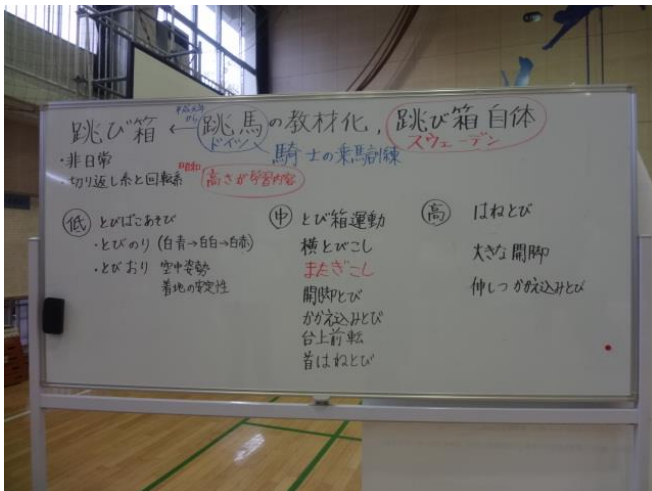 跳び箱 ← 跳馬の教材化, 跳び箱自体
ドイツ
スウェーデン
騎士の乗馬訓練
・非日常
・切り返し系と回転系
高さが学習内容
低 とびばこあそび
・とびのり (白青→白白→白赤)
・とびおり 空中姿勢
着地の安定性
中 とび箱運動
横とびこし
またぎこし
開脚とび
かかえ込みとび
台上前転
首はねとび
高 はねとび
大きな開脚
伸しつかかえ込みとび